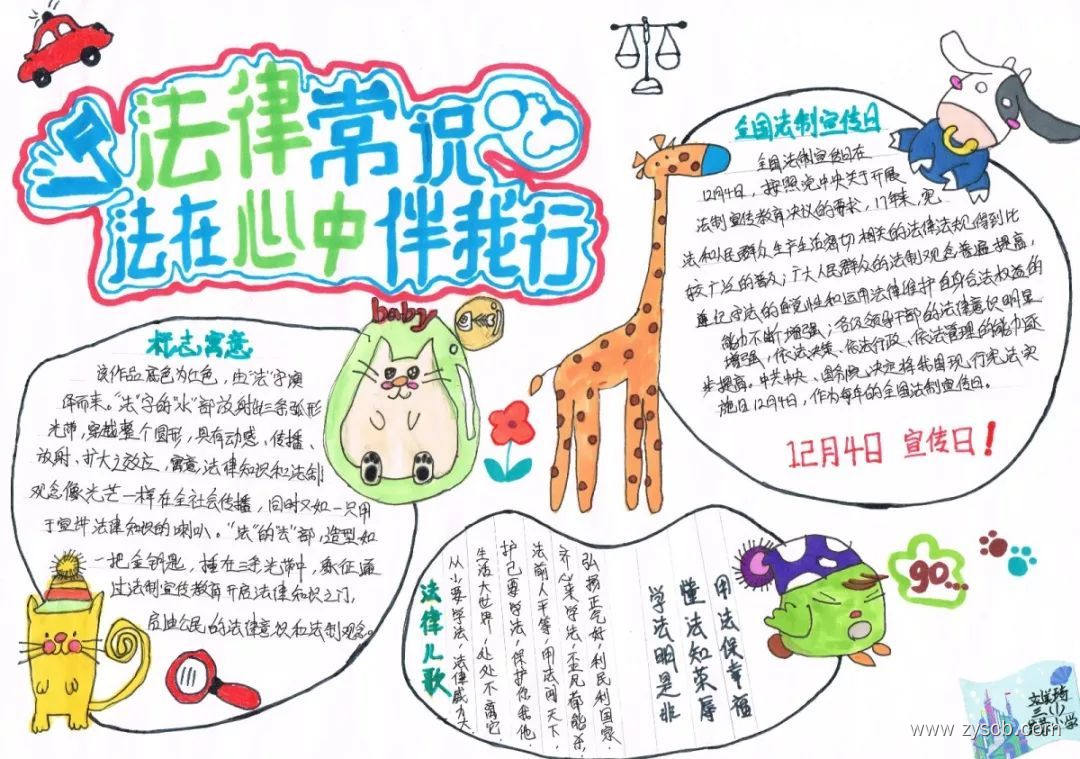 法律常识
法在心中伴我行
全国法制宣传日
全国法制宣传日在
12月4日，按照党中央关于开展
法制宣传教育决议的要求，17年来，宪
法和人民群众生产生活密切相关的法律法规得到比
较广泛的普及；广大人民群众的法制观念普遍提高，
遵纪守法的自觉性和运用法律维护自身合法权益的
能力不断增强；各级领导干部的法律意识明显
增强，依法决策、依法行政、依法管理的能力逐
步提高。中共中央、国务院决定将我国现行宪法实
施日12月4日，作为每年的全国法制宣传日。
12月4日 宣传日！
baby
标志寓意
该作品底色为红色，由“法”字演
绎而来。“法”字的“水”部放射的三条弧形
光带，穿越整个圆形，具有动感、传播、
放射、扩大之效应，寓意法律知识和法制
观念像光芒一样在全社会传播，同时又如一只用
于宣讲法律知识的喇叭。“法”的“去”部，造型如
一把金钥匙，插在三条光带中，象征通
过法制宣传教育开启法律知识之门，
启迪公民的法律意识和法制观念。
法律儿歌
从小要学法，法律威力大，
生活大世界，处处不离它，
护己要学法，保护你我他，
法前人平等，用法闯天下，
齐心来学法，不
弘扬正气好，利民利国家．
学法明是非
懂法知荣辱
用法保幸福
go...
三(1)
小学
www.zyscb.com